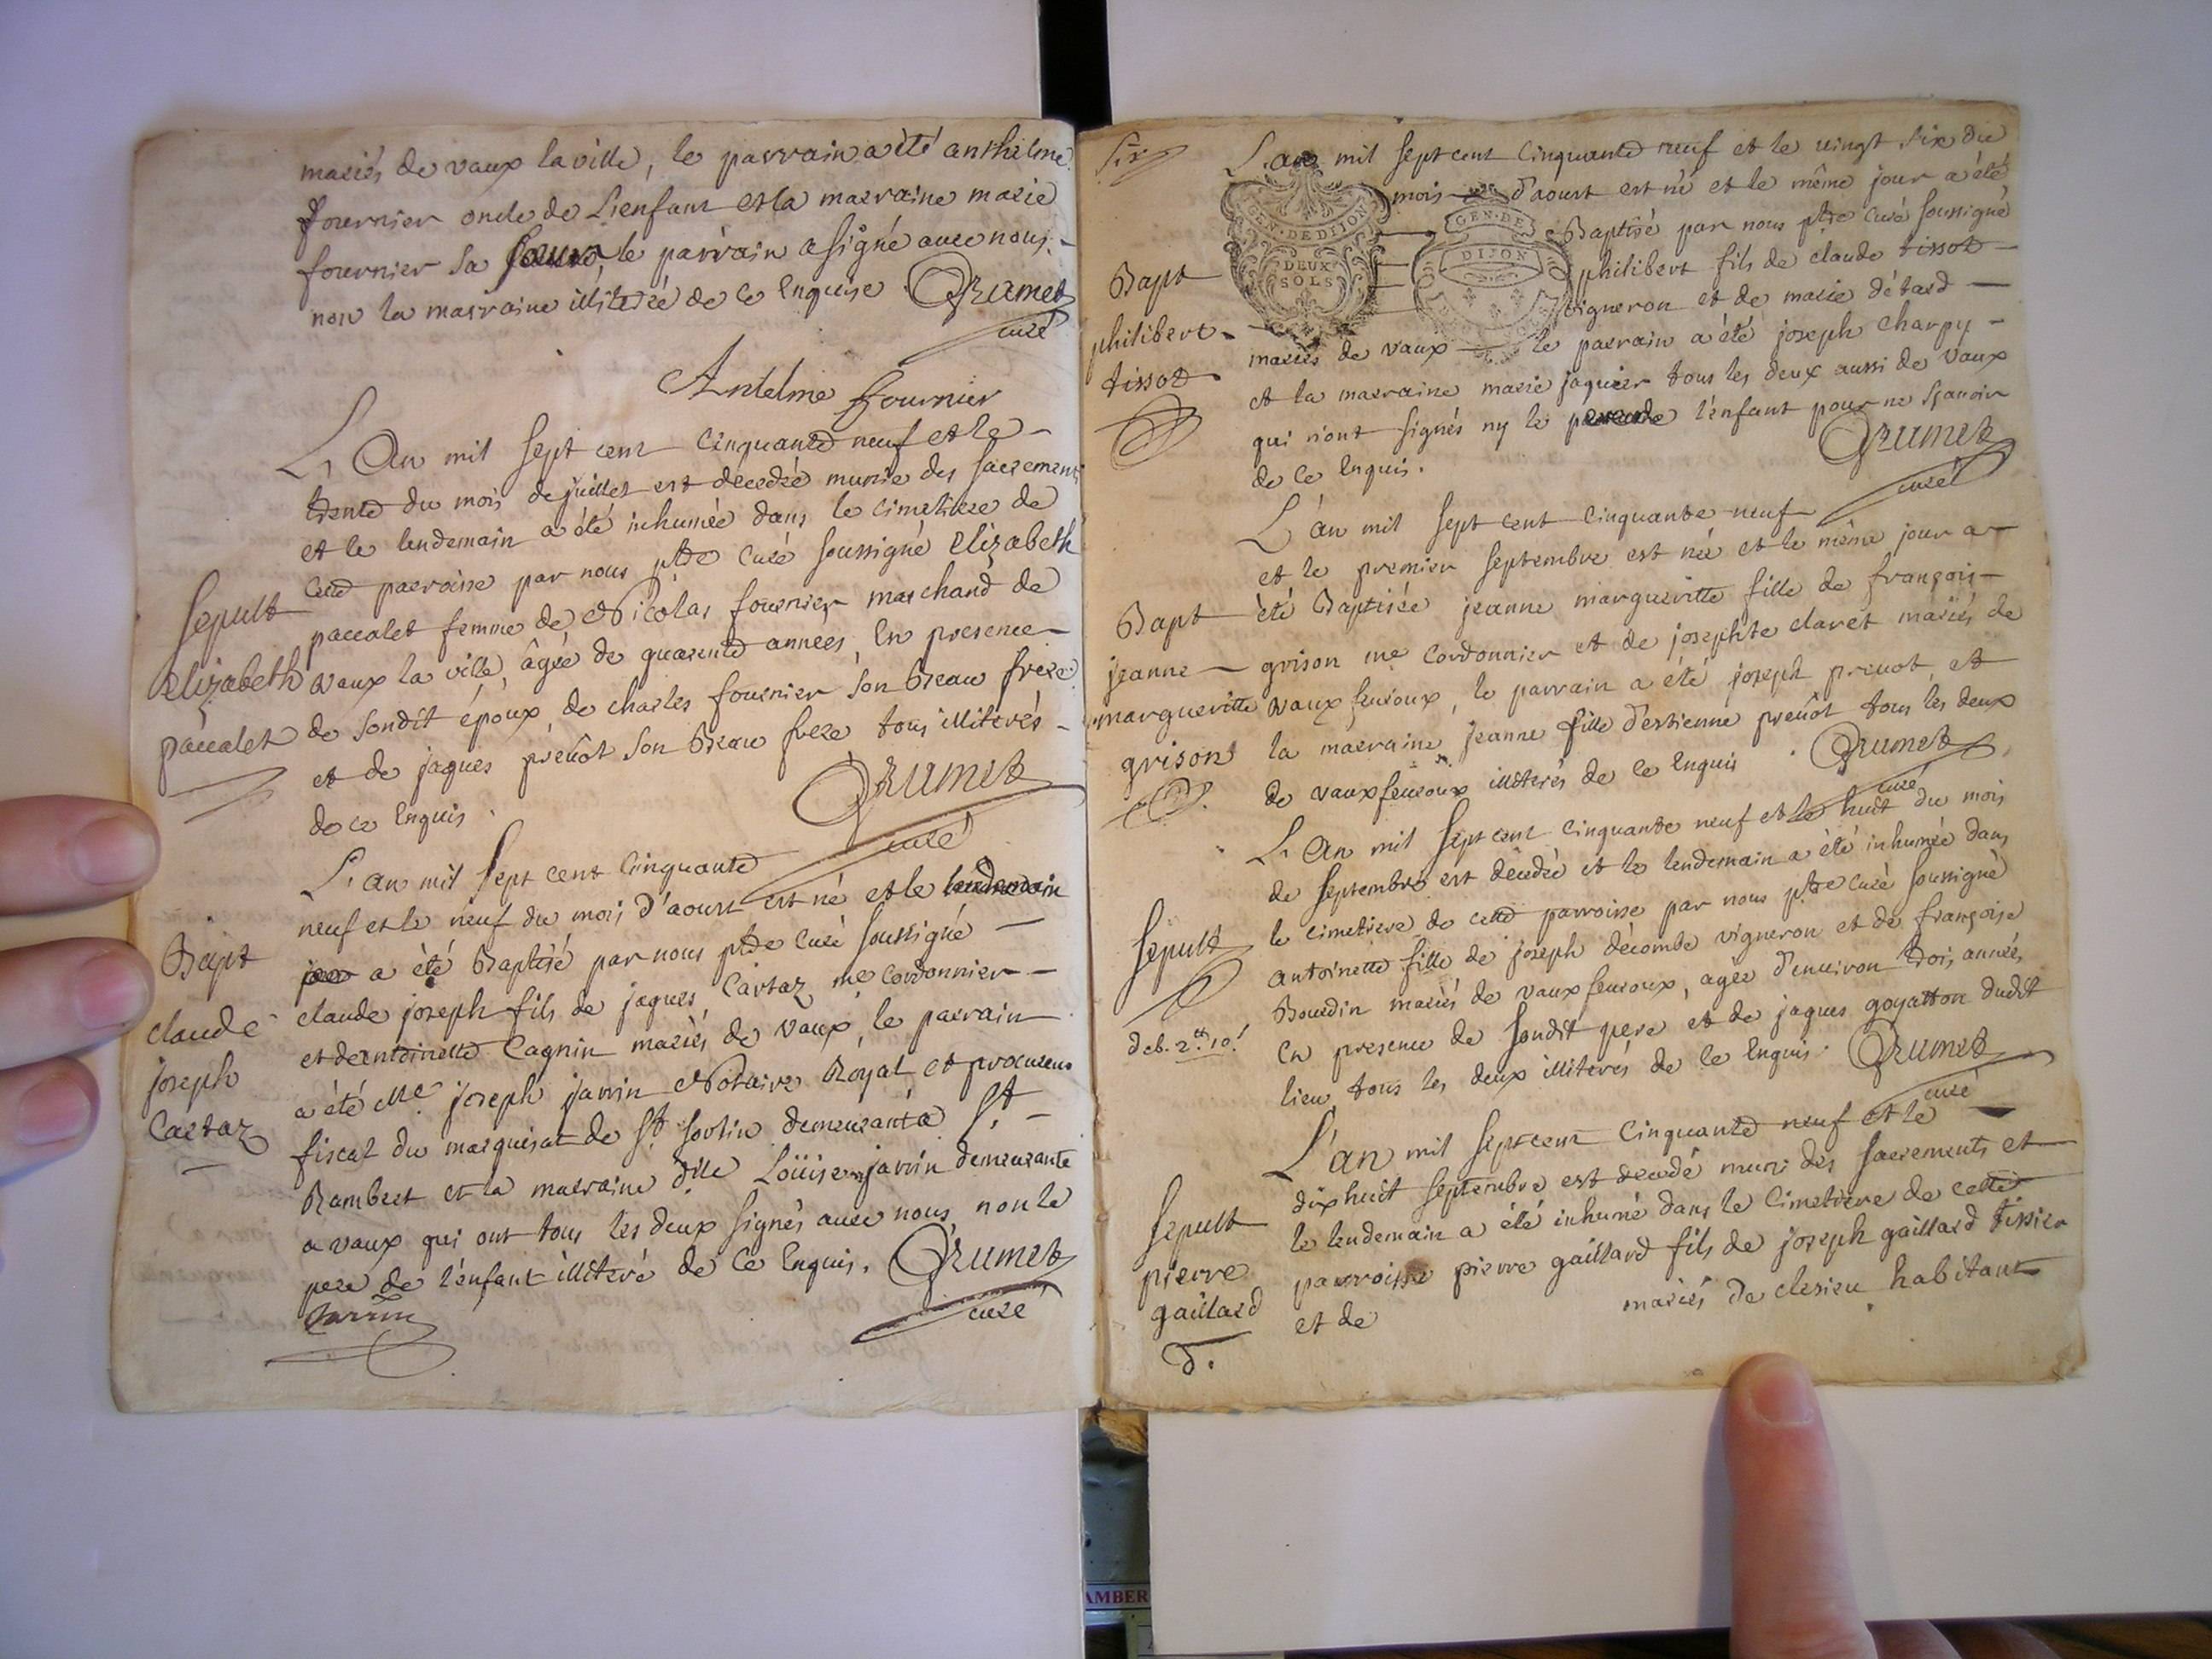 mariés de vaux la ville, le parrain a été anthelme
fournier oncle de L'enfant et la marraine marie
fournier sa le parrain a signé avec nous
non la marraine illiterée de ce Enquise. Grumet
curé
Antelme fournier
L'An mil sept cent cinquante neuf et le
trente du mois de juillet est decedée munie des sacrements
et le lendemain a été inhumée dans le cimetiere de
cette parroisse par nous ptre Curé soussigné Elizabeth
Sepult
paccalet femme de Nicolas fournier marchand de
Elizabeth
vaux la ville, âgée de quarente années, En presence
paccalet
de sondit époux, de charles fournier son beau frere
et de jaques prevôt son beau frere tous illiterés
de ce Enquis.
Grumet
curé
L'an mil sept cent cinquante
neuf et le neuf du mois d'aoust est né et le lendemain
Bapt
a été Baptisé par nous ptre Curé soussigné
claude
claude joseph fils de jaques Cartaz me Cordonnier
joseph
et de antoinette Cagnin mariés de Vaux, le parrain
Cartaz
a été Me joseph jarrin Notaire Royal et procureur
fiscal du marquisat de St Sorlin demeurant a St
Rambert et la marraine dlle Loüise jarrin demeurante
a vaux qui ont tous les deux signés avec nous non le
pere de l'enfant illiteré de ce Enquis. Grumet
curé
Jarrin
Six
L'an mil sept cent cinquante neuf et le vingt six du
mois d'aoust est né et le même jour a été
GEN. DE DIJON
DEUX SOLS
GEN. DE
DIJON
Baptisé par nous ptre Curé soussigné
Bapt
philibert fils de claude tissot
philibert
vigneron et de marie détard
tissot
mariés de vaux le parrain a été joseph charpy
et la marraine marie jaquier tous les deux aussi de vaux
qui n'ont signés ny le l'enfant pour ne sçavoir
de ce Enquis.
Grumet
curé
L'an mil sept cent cinquante neuf
et le premier septembre est née et le même jour a
Bapt
été Baptisée jeanne margueritte fille de françois
jeanne
grison me Cordonnier et de josephte claret mariés de
margueritte
vaux fevroux, le parrain a été joseph prevot, et
grison
la marraine jeanne fille d'estienne prevôt tous les deux
de vaux fevroux illiterés de ce Enquis. Grumet
curé
L'An mil sept cent cinquante neuf et le huit du mois
de septembre est décedée et le lendemain a été inhumée dans
le cimetiere de cette parroisse par nous ptre Curé soussigné
Sepult
antoinette fille de joseph décombe vigneron et de françoise
Bourdin mariés de vaux fevroux, agée d'environ trois années
deb. 2. 10!
en presence de sondit pere et de jaques goyatton dudit
lieu, tous les deux illiterés de ce Enquis. Grumet
curé
L'an mil sept cent cinquante neuf et le
dix huit septembre est decedé muni des sacrements et
Sepult
le lendemain a été inhumé dans le Cimetiere de cette
pierre
parroisse pierre gaillard fils de joseph gaillard tissier
gaillard
et de mariés de clesieu habitant